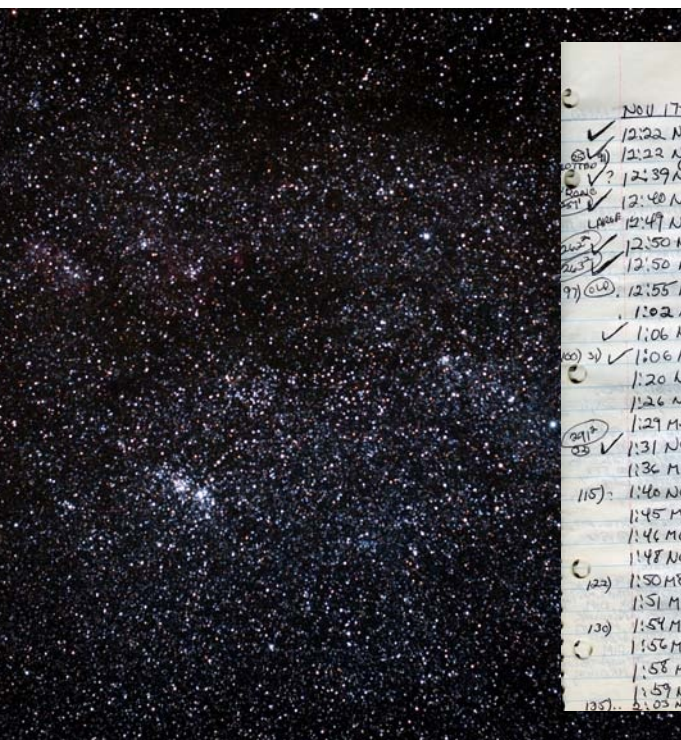 NOV 17
✓ 12:22 N
✓ 12:22 N
✓? 12:39 N
✓ 12:40 N
LARGE 12:49 N
✓ 12:50 N
✓ 12:50
97) OLD. 12:55
1:02
✓ 1:06 N
31) ✓ 1:06
1:20 N
1:26 N
1:29 M
✓ 1:31 N
1:36 M
115). 1:40 NO
1:45 M
1:46 M
1:48 NO
122) 1:50 M
1:51 M
130) 1:54 M
1:56 M
1:58 M
1:59 N
135).. 2:03 N